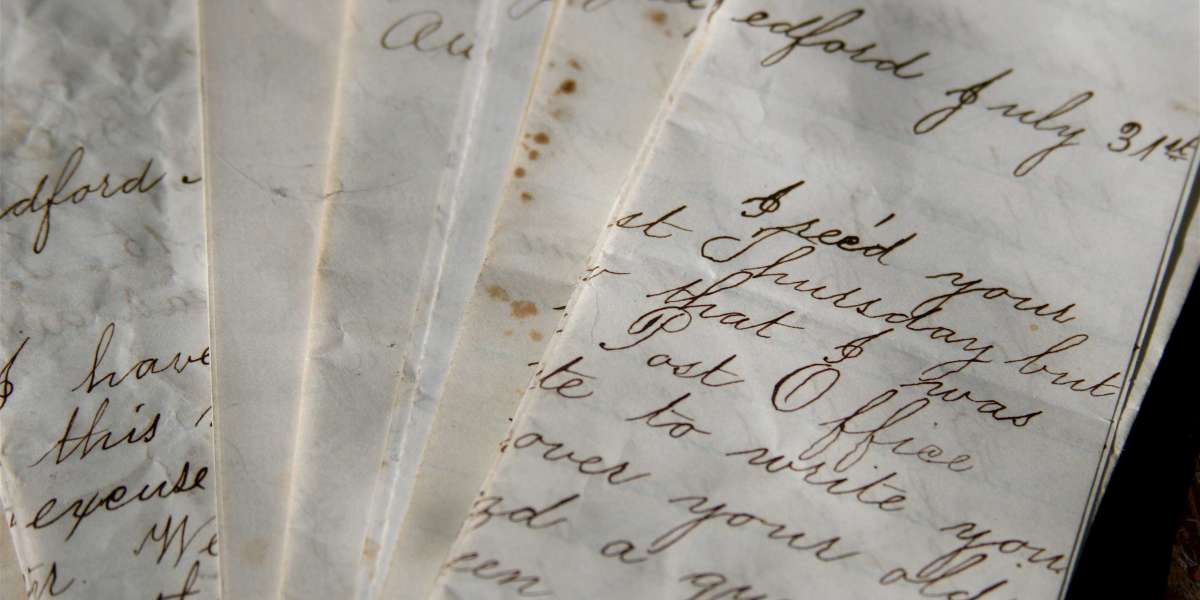 Au
edford July 31st
dford -
I rec'd your
st Thursday but
that I was
Post Office
te to write you
over your old
zd a
een
I have
this
excuse
We